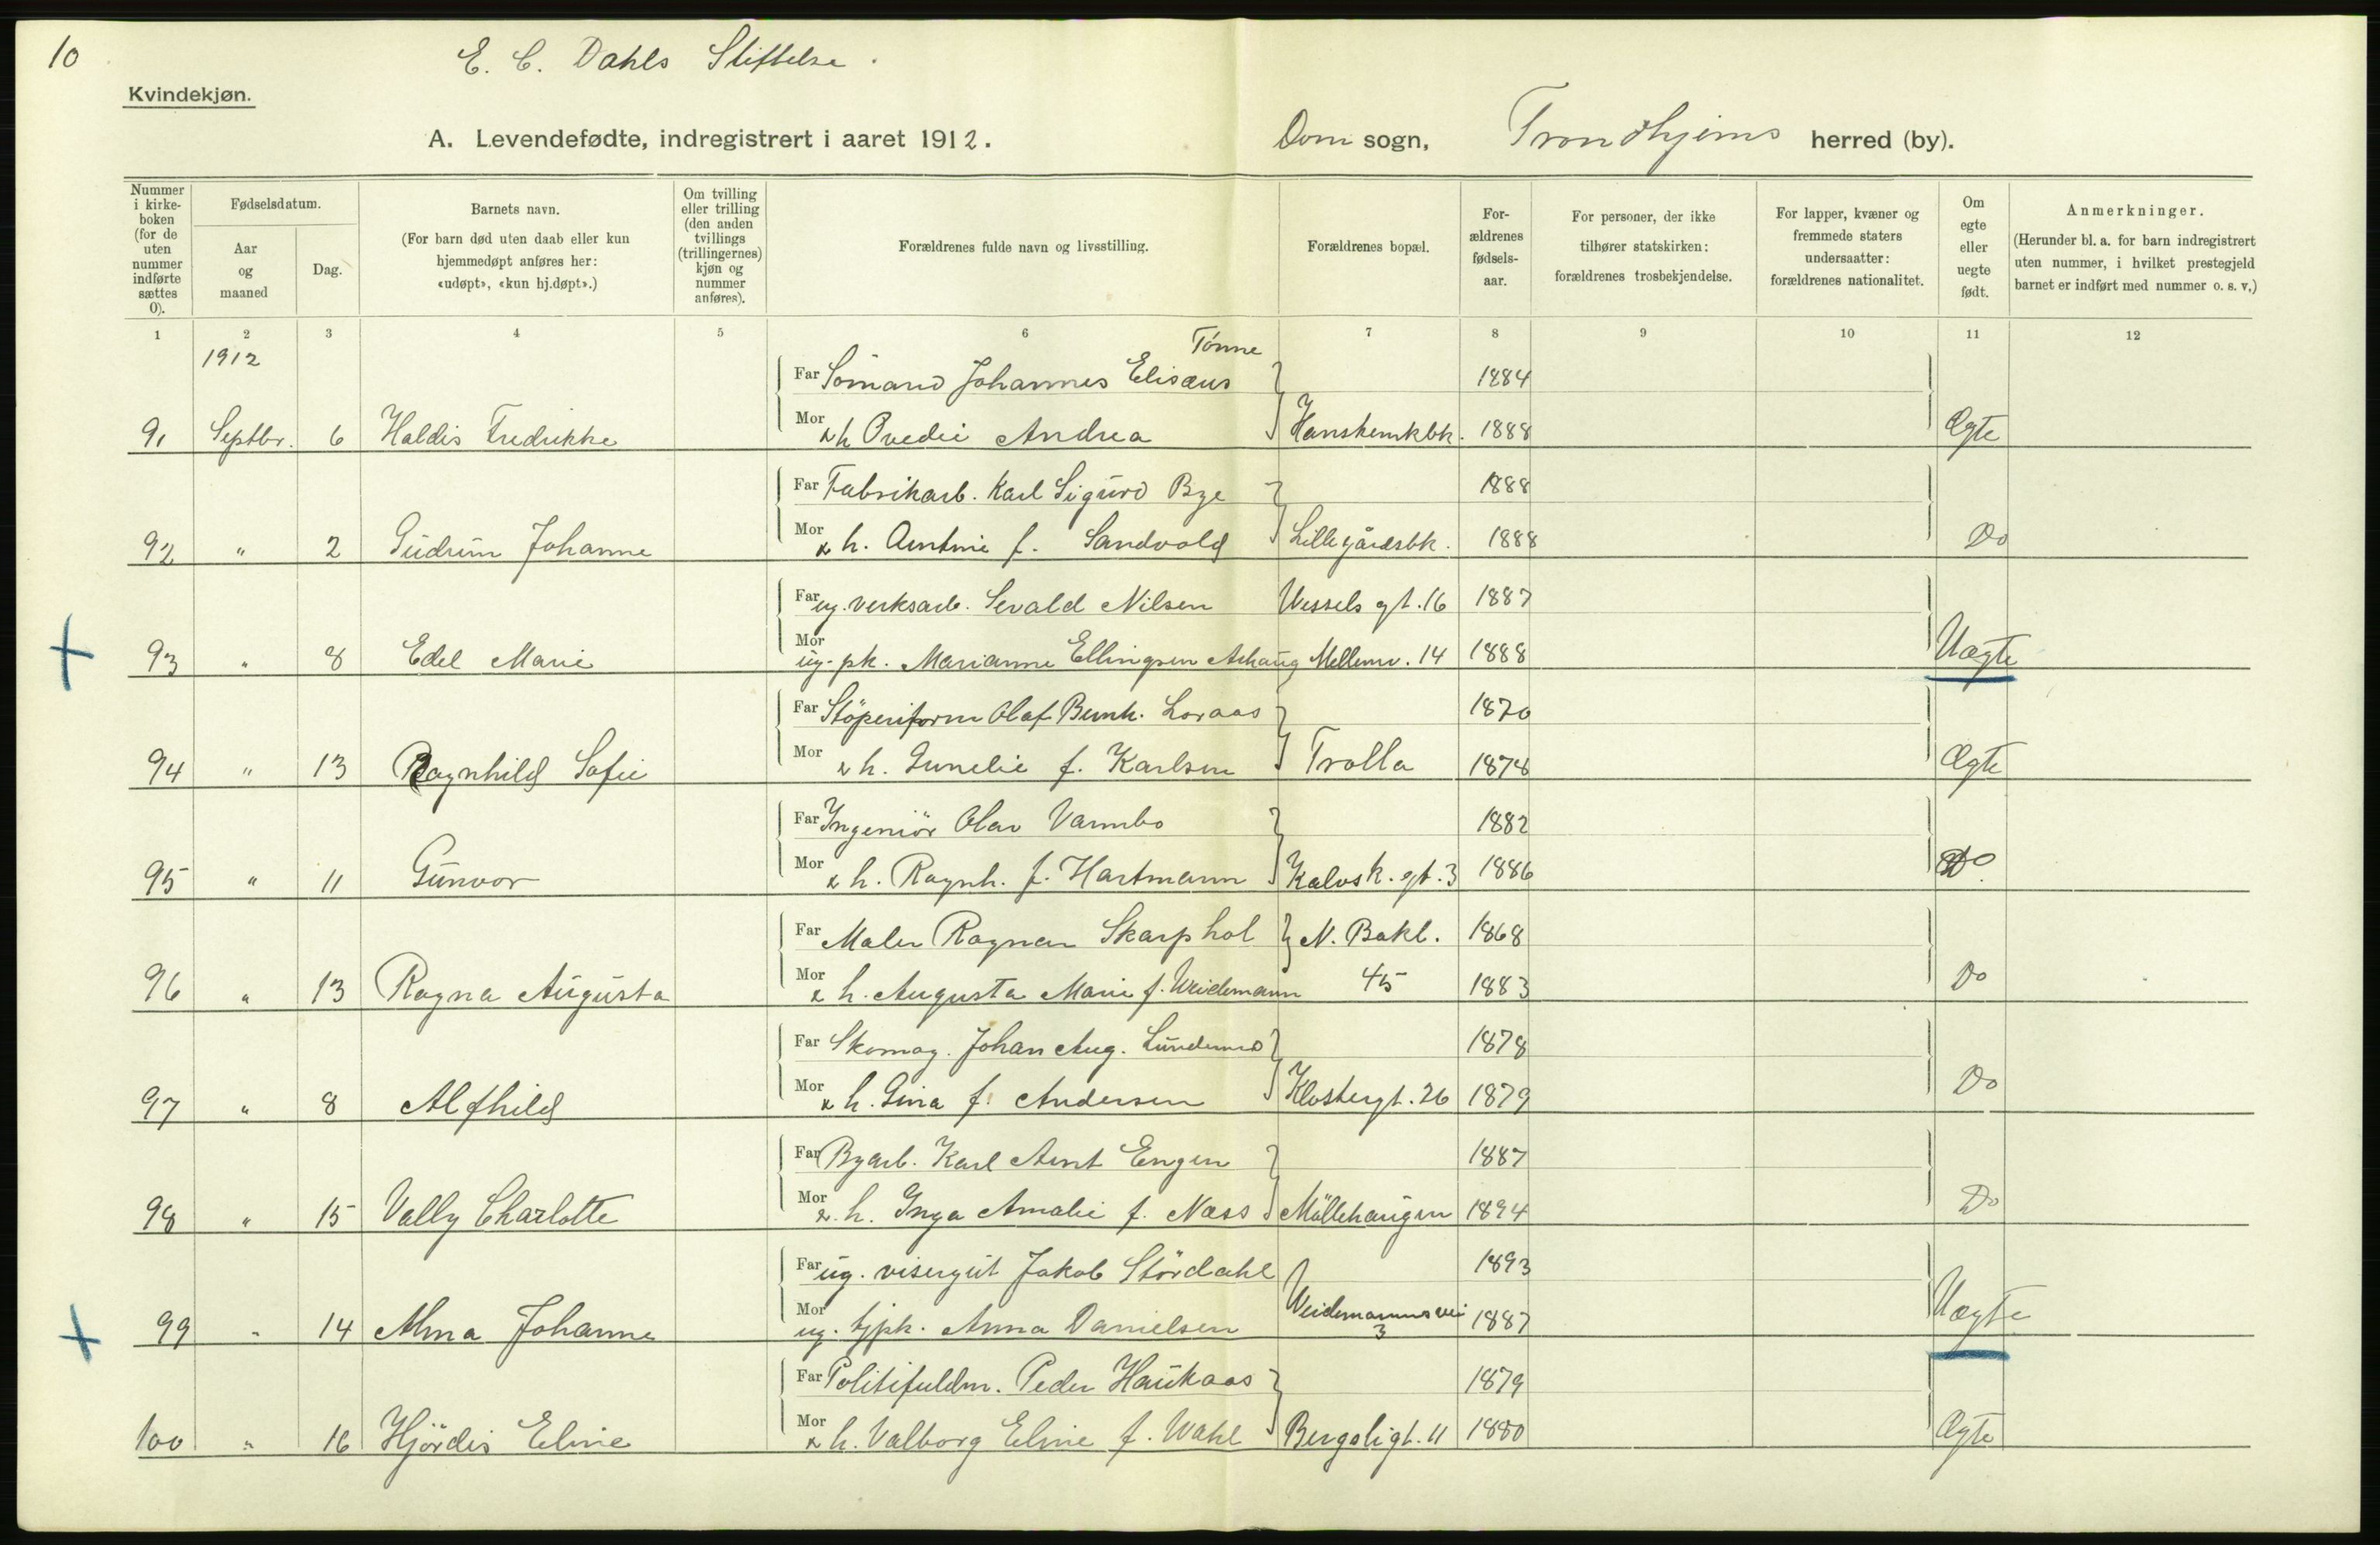 10
E. C. Dahls Stiftelse.
Kvindekjøn.
A. Levendefødte, indregistrert i aaret 1912.
Dom sogn, Trondhjems herred (by).
Nummer i kirkeboken (for de uten nummer indførte sættes 0).
Fødselsdatum.
Aar og maaned
Dag.
Barnets navn.
(For barn død uten daab eller kun hjemmedøpt anføres her: «udøpt», «kun hj.døpt».)
Om tvilling eller trilling (den anden tvillings (trillingernes) kjøn og nummer anføres).
Forældrenes fulde navn og livsstilling.
Forældrenes bopæl.
Forældrenes fødselsaar.
For personer, der ikke tilhører statskirken: forældrenes trosbekjendelse.
For lapper, kvæner og fremmede staters undersaatter: forældrenes nationalitet.
Om egte eller uegte født.
Anmerkninger.
(Herunder bl. a. for barn indregistrert uten nummer, i hvilket prestegjeld barnet er indført med nummer o. s. v.)
1 2 3 4 5 6 7 8 9 10 11 12
1912
Tönne
Far Sömand Johannes Elisæus 1884
91 Septbr. 6 Haldis Fredrikke Mor & h Ovedie Andrea 1888 Ægte
Far Fabrikarb. Karl Sigurd Bye 1888
92 " 2 Gudrun Johanne Mor & h. Antmie f. Sandvold Lillegårdsbk. 1888 Do
Far ug. verksarb. Sevald Nilsen Wessels gt. 16 1887
93 " 8 Edel Marie Mor ug. pk. Marianne Ellingsen Ashaug Mellemv. 14 1888 Uægte
Far Stöperiform Olaf Bernh. Loraas 1870
94 " 13 Ragnhild Sofie Mor & h. Gunelie f. Karlsen Trolla 1874 Ægte
Far Ingeniör Olav Varmbo 1882
95 " 11 Gunvor Mor & h. Ragnh. f. Hartmann Kalvsk. gt. 3 1886 Do
Far Maler Ragnar Skarphol N. Bakl. 1868
96 " 13 Ragna Augusta Mor & h. Augusta Marie f. Weidemann 45 1883 Do
Far Skomag. Johan Aug. Lundemo 1878
97 " 8 Alfhild Mor & h. Gina f. Andersen Klostergt. 26 1879 Do
Far Byarb. Karl Arnt Engen 1887
98 " 15 Vally Charlotte Mor & h. Inga Amalie f. Næss Möllehaugen 1894 Do
Far ug. visergut Jakob Stördahl 1893
99 " 14 Alma Johanne Mor ug. tjpk. Anna Danielsen Weidemannsvei 3 1887 Uægte
Far Politifuldm. Peder Haukaas 1879
100 " 16 Hjördis Eline Mor & h. Valborg Eline f. Wahl Bergsligt. 11 1880 Ægte